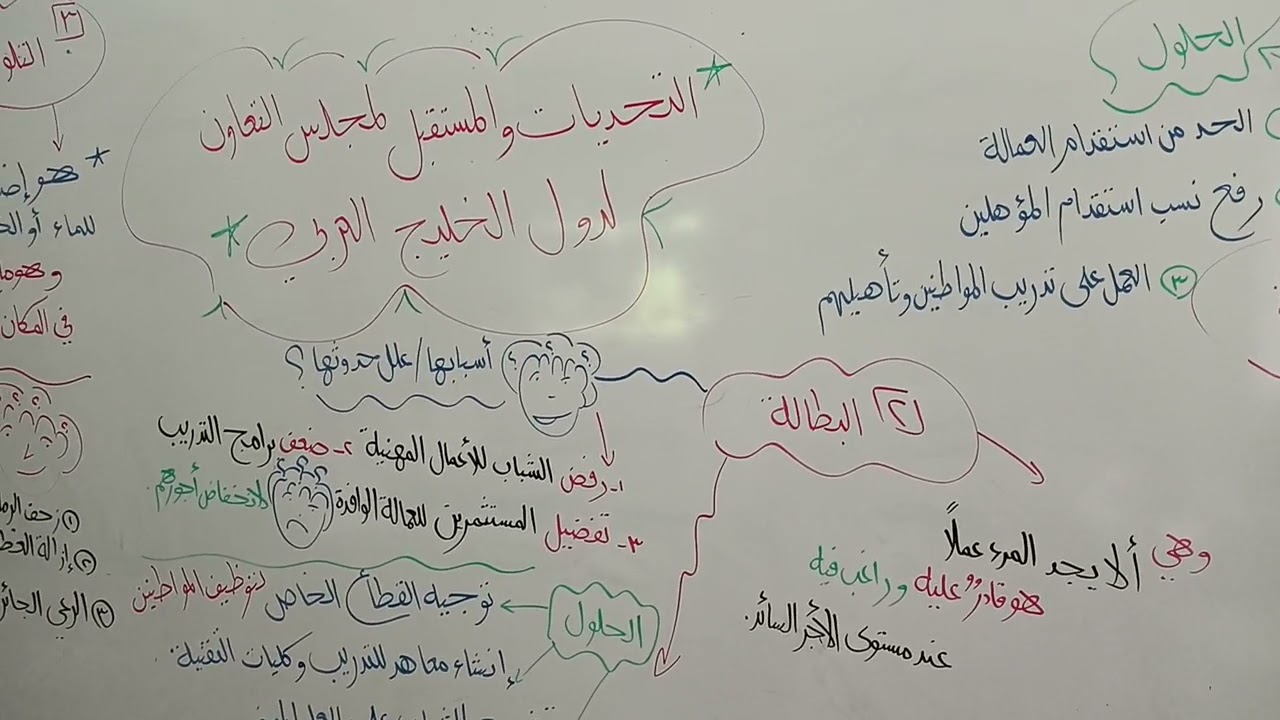 التحديات والمستقبل لمجلس التعاون
لدول الخليج العربي
الحلول
الحد من استقدام العمالة
رفع نسب استقدام المؤهلين
٣ العمل على تدريب المواطنين وتأهيلهم
٢ البطالة
وهي ألا يجد المرء عملاً
هو قادرٌ عليه وراغب فيه
عند مستوى الأجر السائد.
أسبابها/علل حدوثها؟
١- رفض الشباب للأعمال المهنية ٢- ضعف برامج التدريب
٣- تفضيل المستثمرين للعمالة الوافدة لانخفاض أجورهم.
الحلول
توجيه القطاع الخاص لتوظيف المواطنين
إنشاء معاهد للتدريب وكليات التقنية.
٣
هو
للماء أو
في المكان
١ زحف
٢ إزالة
٣ الرعي الجائر